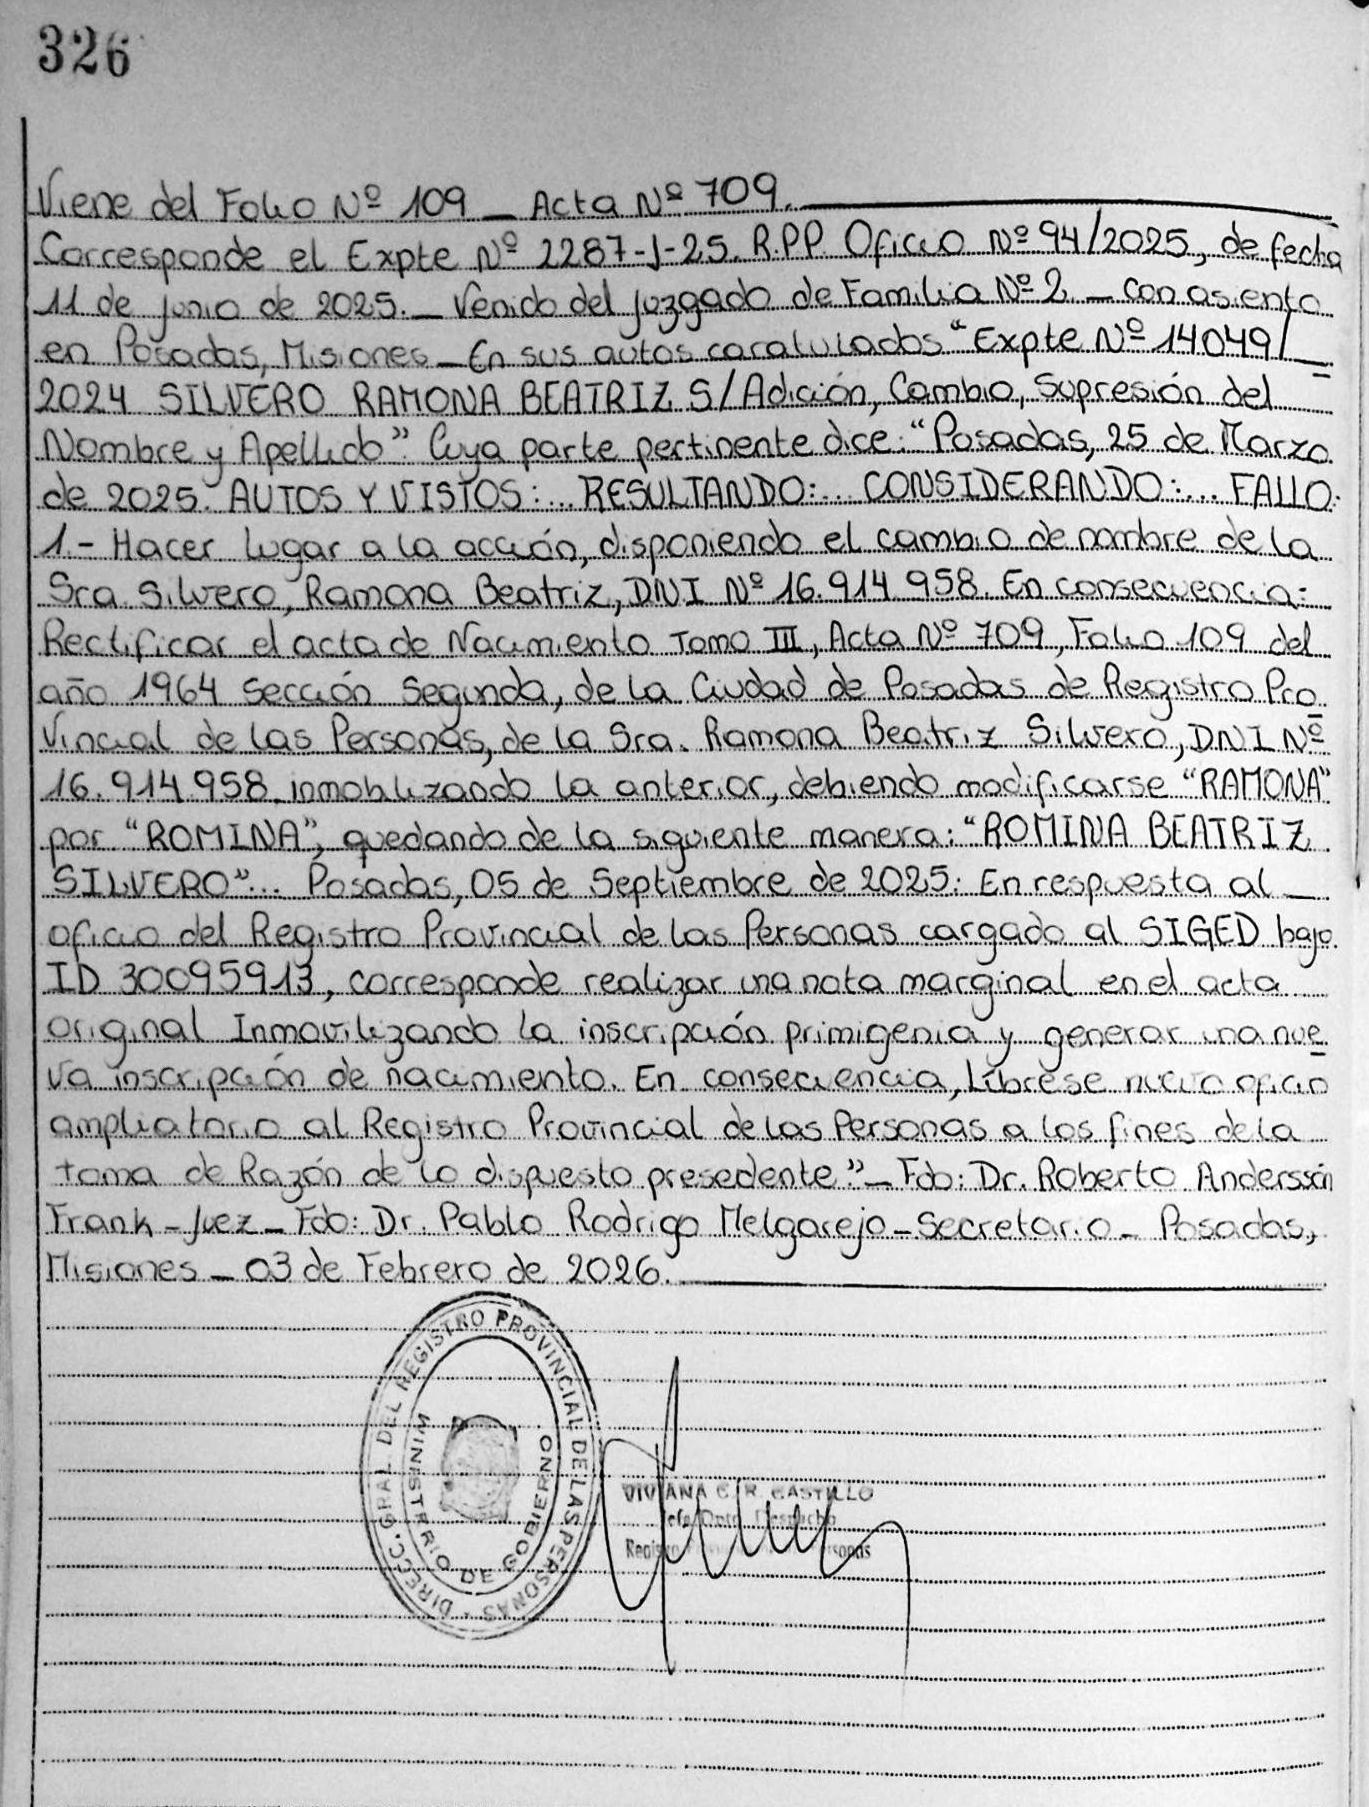 326
Viene del Folio Nº 109 _ Acta Nº 709.
Corresponde el Expte Nº 2287-J-25. R.P.P. Oficio Nº 94/2025, de fecha
11 de junio de 2025. _ Venido del juzgado de Familia Nº 2 _ con asiento
en Posadas, Misiones _ En sus autos caratulados "Expte Nº 14049/
2024 SILVERO RAMONA BEATRIZ S/Adición, Cambio, Supresión del
Nombre y Apellido". Cuya parte pertinente dice: "Posadas, 25 de Marzo
de 2025. AUTOS Y VISTOS:... RESULTANDO:... CONSIDERANDO:... FALLO:
1.- Hacer lugar a la acción, disponiendo el cambio de nombre de la
Sra Silvero, Ramona Beatriz, DNI Nº 16.914.958. En consecuencia:
Rectificar el acta de Nacimiento Tomo III, Acta Nº 709, Folio 109 del
año 1964 Sección Segunda, de la Ciudad de Posadas de Registro Pro
Vincial de las Personas, de la Sra. Ramona Beatriz Silvero, DNI Nº
16.914.958 inmobilizando la anterior, debiendo modificarse "RAMONA"
por "ROMINA", quedando de la siguiente manera: "ROMINA BEATRIZ
SILVERO"... Posadas, 05 de Septiembre de 2025: En respuesta al
oficio del Registro Provincial de las Personas cargado al SIGED bajo
ID 30095913, corresponde realizar una nota marginal en el acta
original Inmovilizando la inscripción primigenia y generar una nue
va inscripción de nacimiento. En consecuencia, Líbrese nuevo oficio
ampliatorio al Registro Provincial de las Personas a los fines de la
toma de Razón de lo dispuesto presedente." _ Fdo: Dr. Roberto Anderssón
Frank _ Juez _ Fdo: Dr. Pablo Rodrigo Melgarejo _ Secretario _ Posadas,
Misiones _ 03 de Febrero de 2026.
DIRECC. GRAL. DEL REGISTRO PROVINCIAL DE LAS PERSONAS
MINISTERIO DE GOBIERNO
VIVIANA C. R. CASTILLO
Jefa Dpto. Despacho